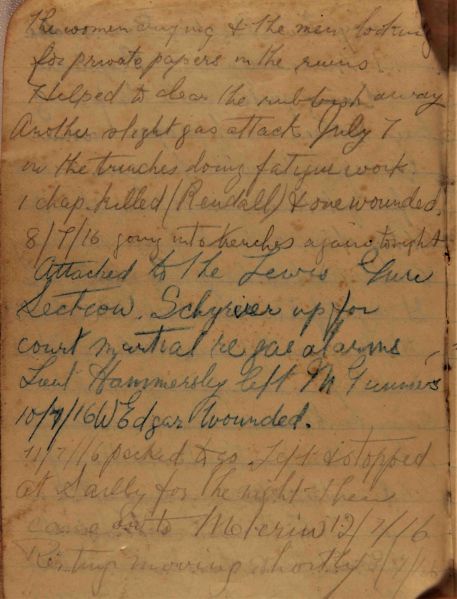 The women crying & the men looking
for private papers in the ruins
Helped to clear the rubbish away
Another slight gas attack July 7
in the trenches doing fatigue work.
1 chap killed (Rendall) & one wounded.
8/7/16 going into trenches again tonight
Attached to the Lewis Gun
Section. Schyrier up for
court martial re gas alarms
Lieut Hammersley left M Gunners
10/7/16 W Edgar wounded.
11/7/16 packed to go. Left & stopped
at Sailly for the night then
came on to Meterin 12/7/16
moving shortly